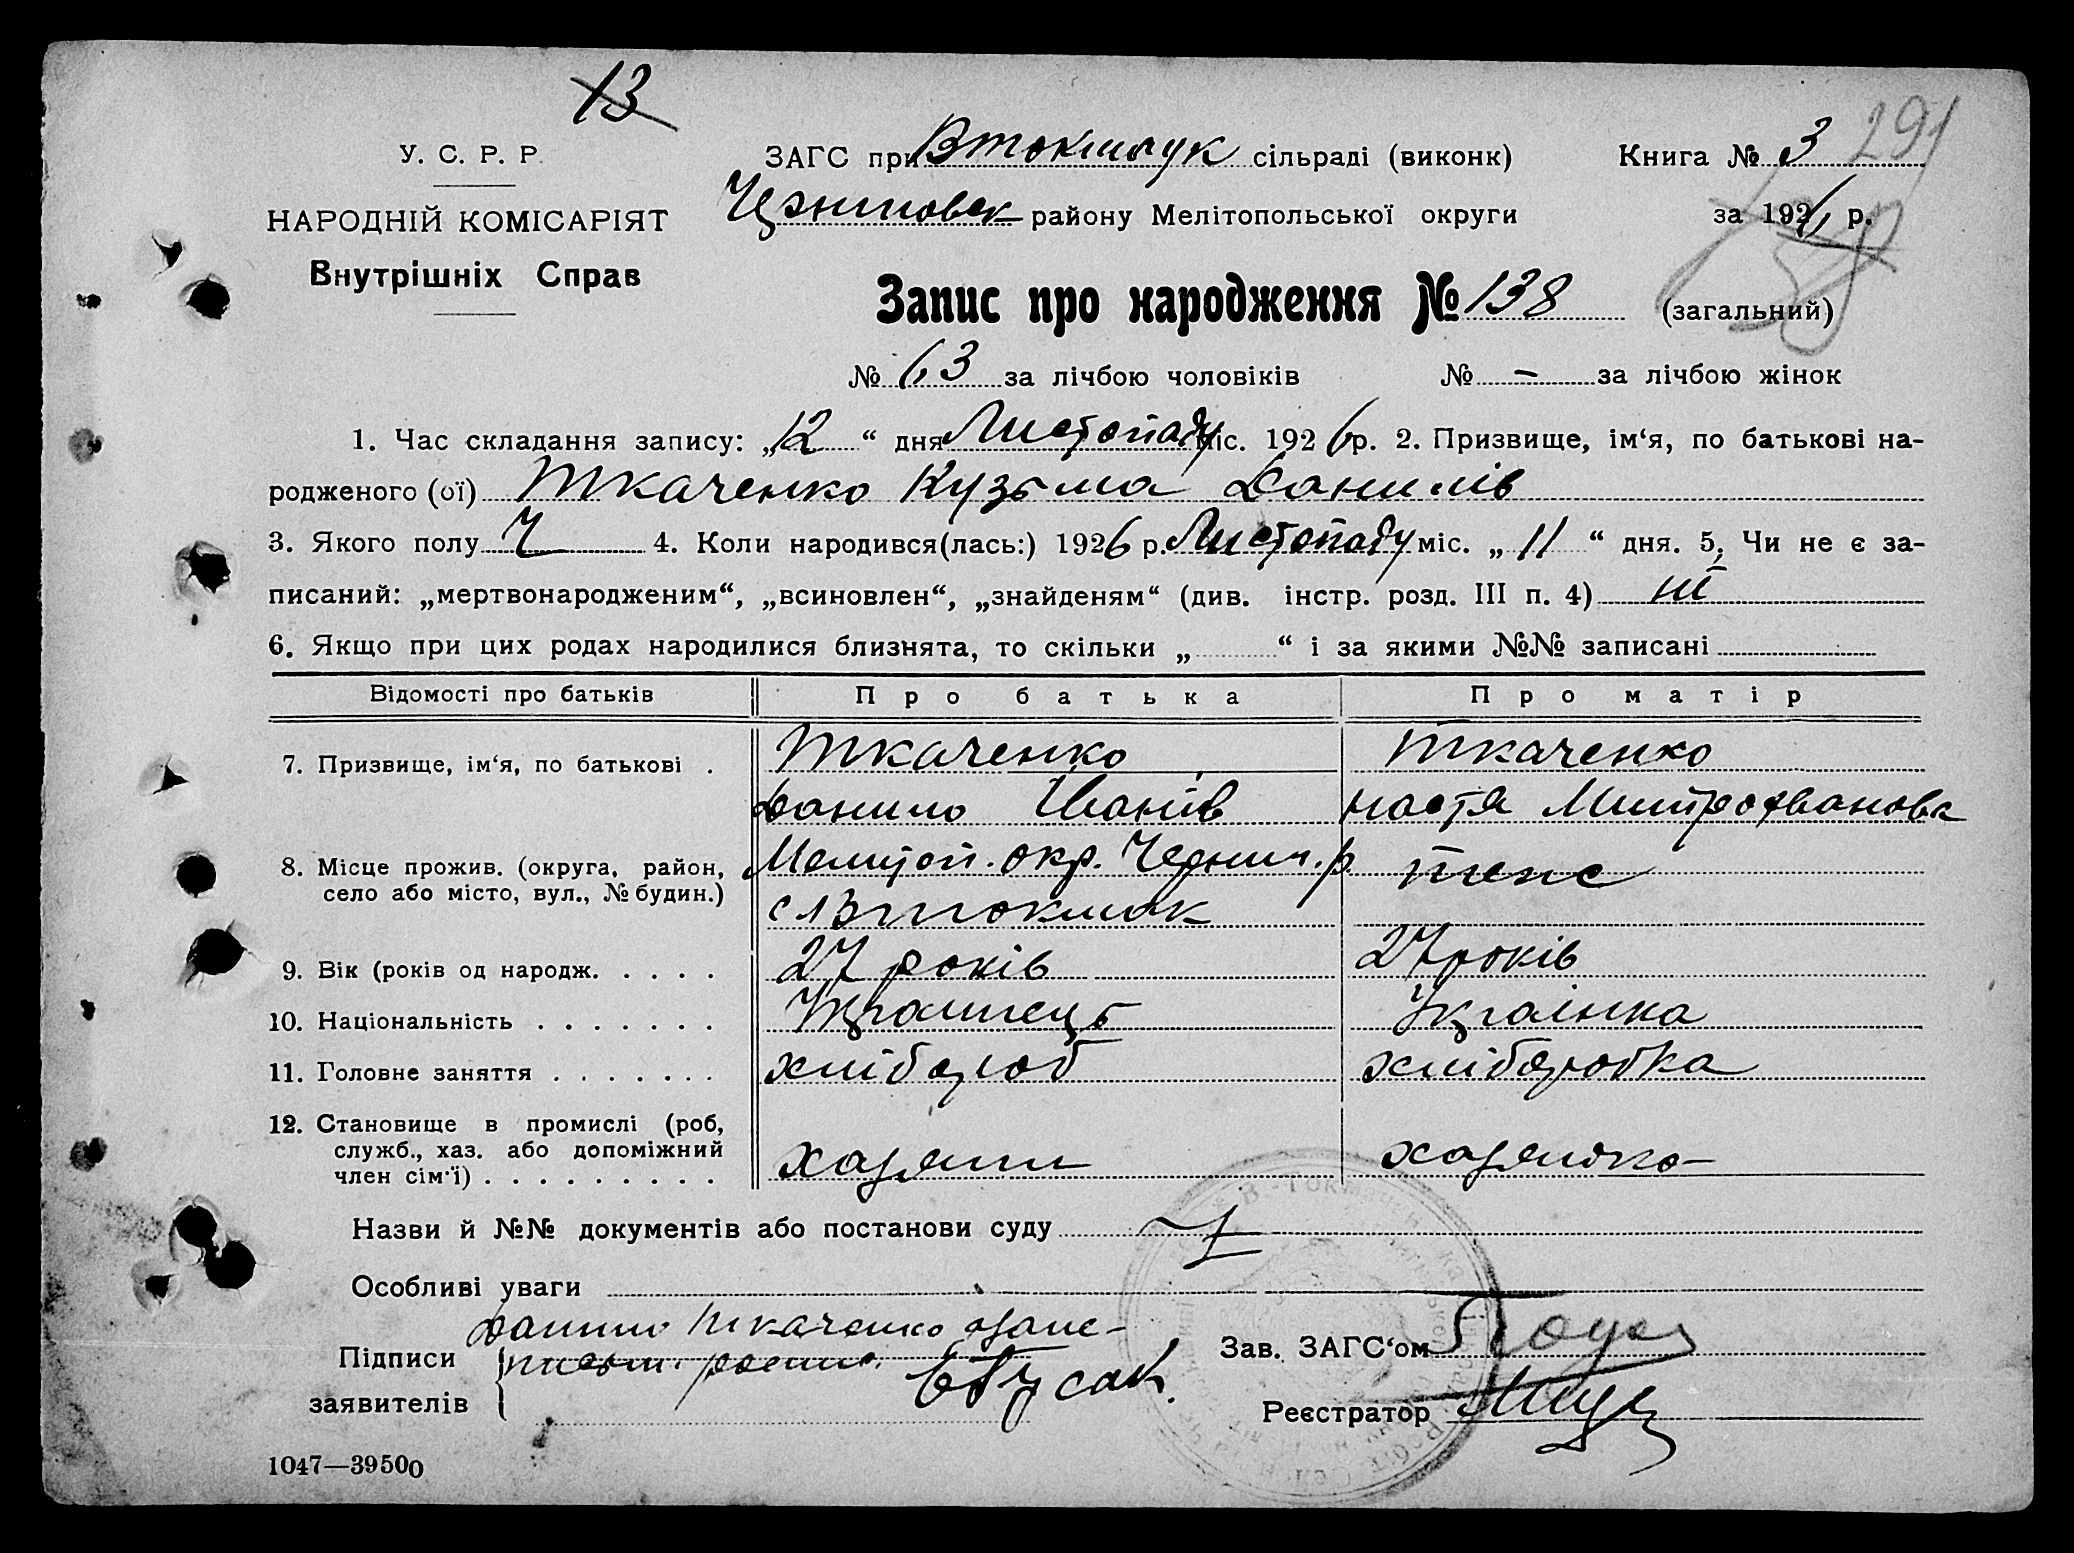 13
291
У. С. Р. Р.
НАРОДНІЙ КОМІСАРІЯТ
Внутрішніх Справ
ЗАГС при Втокмацк сільраді (виконк)
Книга № 3
районy Мелітопольської округи
за 1926 р.
Запис про народження № 138 (загальний)
№ 63 за лічбою чоловіків № – за лічбою жінок
1. Час складання запису: „12“ дня Листопаду міс. 1926 р. 2. Призвище, ім‘я, по батькові на-
родженого (ої) Ткаченко Кузьма Данилів
3. Якого полу Ч 4. Коли народився(лась:) 1926 р. Листопаду міс. „11“ дня. 5. Чи не є за-
писаний: „мертвонародженим“, „всиновлен“, „знайденям“ (див. інстр. розд. III п. 4) ні
6. Якщо при цих родах народилися близнята, то скільки „ “ і за якими №№ записані
Відомості про батьків Про батька Про матір
7. Призвище, ім‘я, по батькові . Ткаченко Ткаченко
Данило Іванів Настя Митрофановa
8. Місце прожив. (округа, район, Меліտоп. окр. Черниг. р. теж
село або місто, вул., № будин.) с. Втокмак
9. Вік (років од народж. . . . . 27 років 27 років
10. Національність . . . . . . . Українець Українка
11. Головне заняття . . . . . . . хлібороб хліборобка
12. Становище в промислі (роб,
служб., хаз. або допоміжний хазяїн хазяйка
член сім‘ї) . . . . . . . . . .
Назви й №№ документів або постанови суду
Особливі уваги
Данило Ткаченко а за не-
Підписи
заявителів
письм. роспис.
Зав. ЗАГС‘ом
Реєстратор
1047—39500